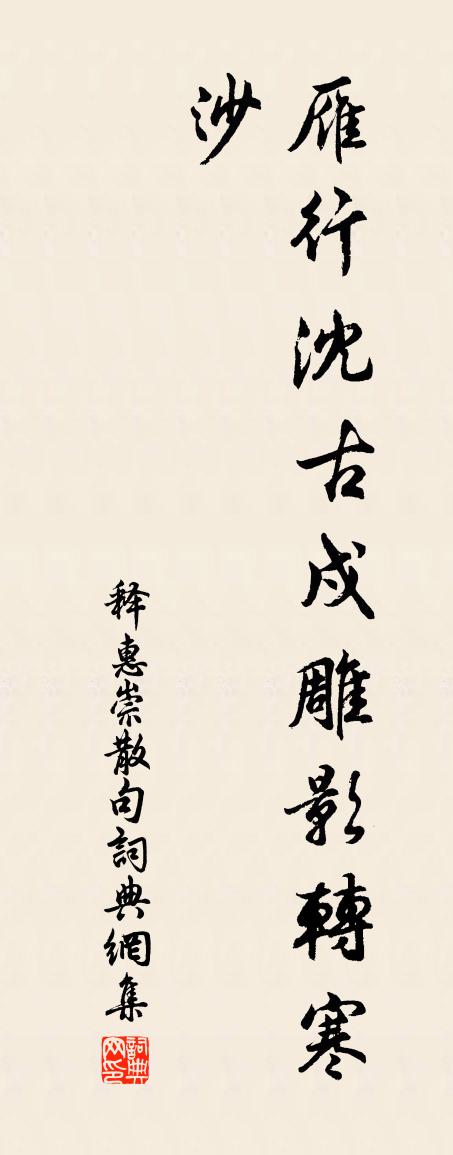 雁行沈古戍雕影轉寒
沙
释惠崇散句詞典網集
詞典网印